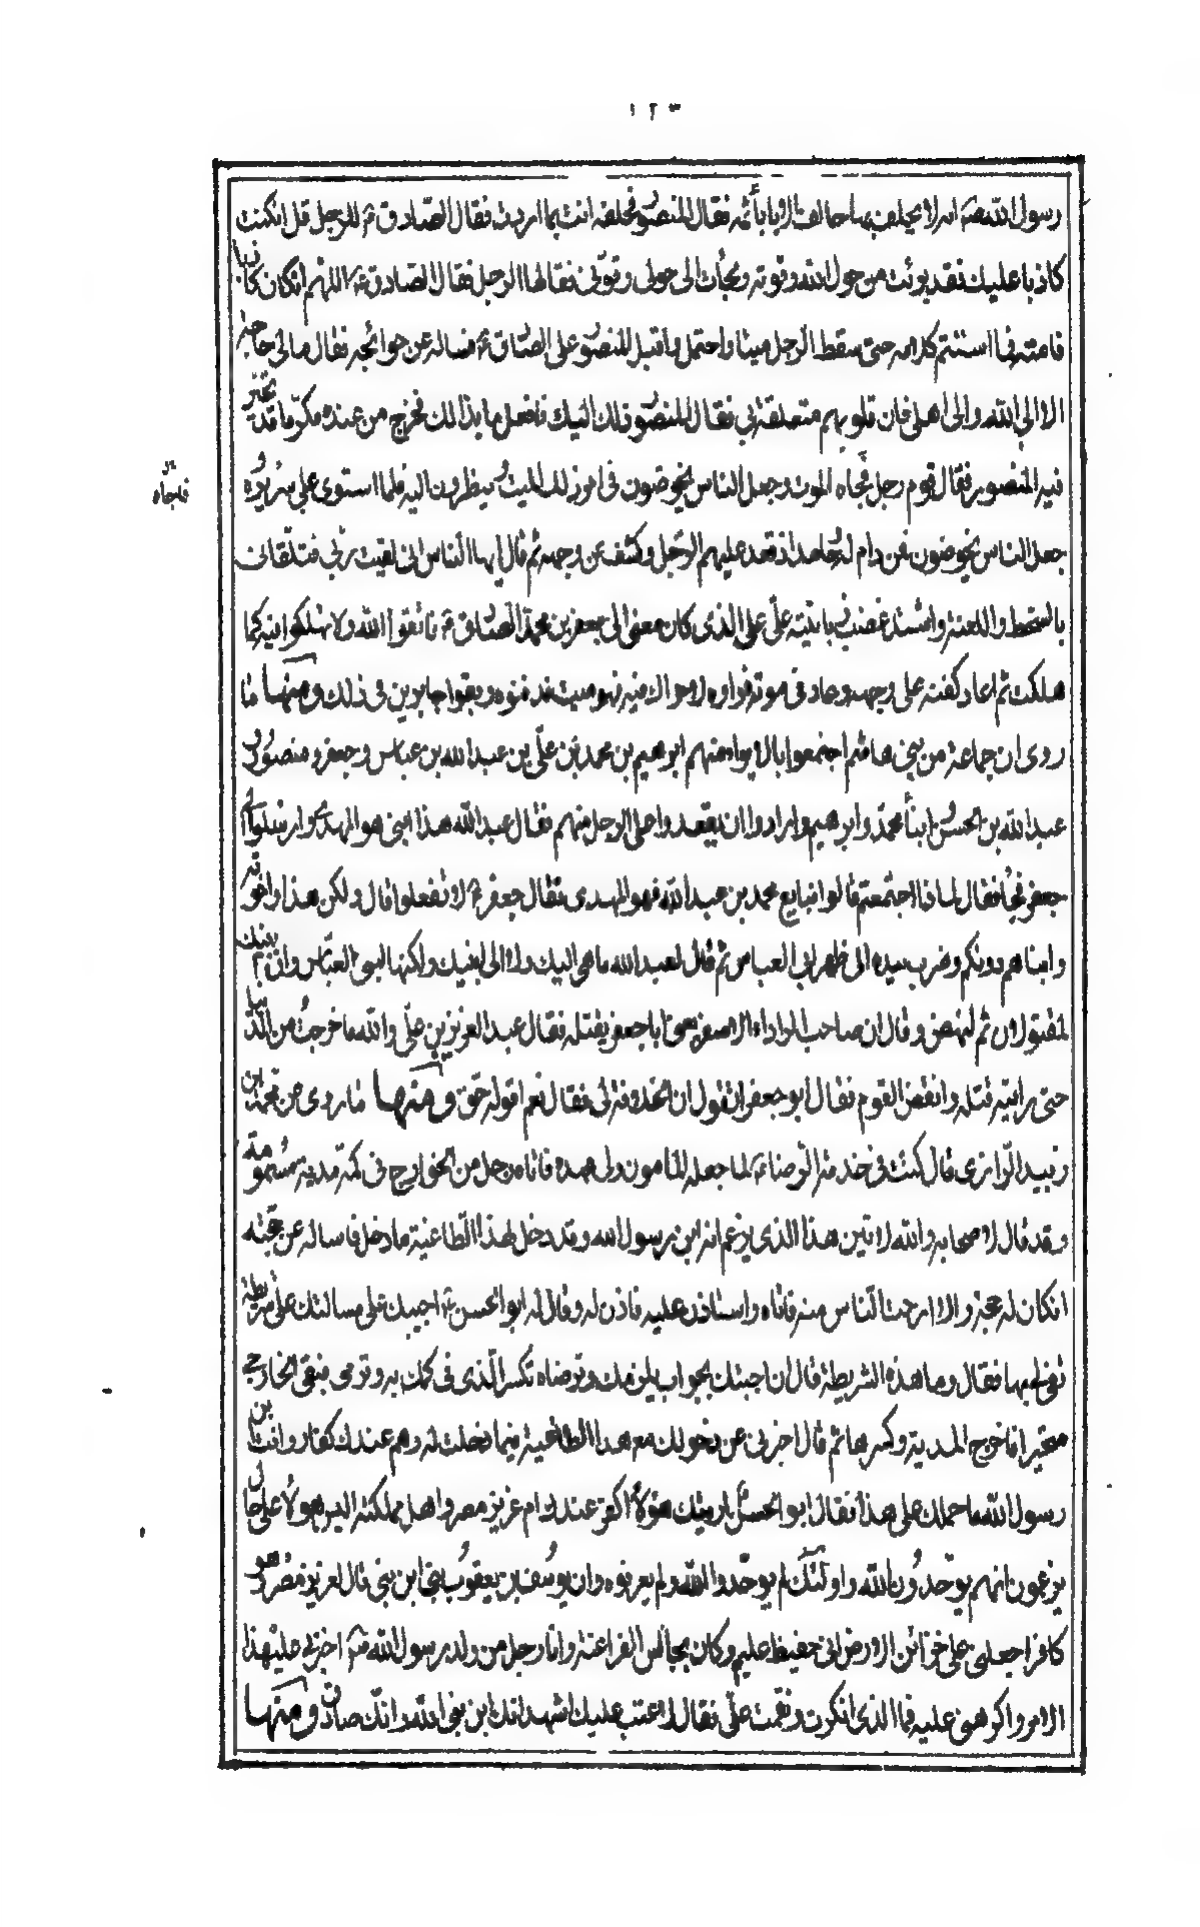 ١٢٣
رسول الله صه انه لا يحلف بها حالف الا باء بأثمه فقال المنصور فحلفه انت بما اردت فقال الصادق ع للرجل قل ان كنت
كاذبا عليك فقد برئت من حول الله وقوته ولجأت الى حولى وقوتى فقالها الرجل فقال الصادق ع اللهم ان كان كاذبا
فامته فما استتم كلامه حتى سقط الرجل ميتا واحتمل واقبل المنصور على الصادق ع فساله عن حوائجه فقال مالى حاجة
الا الى الله والى اهلى فان قلوبهم متعلقة بى فقال المنصور ذلك اليك فافعل ما بدا لك فخرج من عنده مكرما قد تحير
فيه المنصور فقال قوم رجل فجاه الموت وجعل الناس يخوضون فى امر ذلك الميت وينظرون اليه فلما استوى على سريره
فاجاه
جعل الناس يخوضون فمن دام له وحامد اذ قعد عليهم الرجل وكشف عن وجهه ثم قال ايها الناس انى لقيت ربى فتلقانى
بالسخط واللعنة واشتد غضب زبانيته علىّ على الذى كان منى الى جعفر بن محمد الصادق ع فاتقوا الله ولا تهلكوا فيه كما
هلكت ثم اعاد كفنه على وجهه وعاد فى موته فراوه لا حراك فيه فهو ميت فدفنوه وبقوا حايرين فى ذلك ومنها ما
روى ان جماعة من بنى هاشم اجتمعوا بالابواء منهم ابرهيم بن محمد بن علىّ بن عبد الله بن عباس وجعفر ومنصور و
عبد الله بن الحسن وابناه محمد وابرهيم وارادوا ان يعقدوا على الرجل منهم فقال عبد الله هذا ابنى هو المهدى وارسلوا الى
جعفر فجاء فقال لماذا اجتمعتم قالوا نبايع محمد بن عبد الله فهو المهدى فقال جعفر ع لا تفعلوا قال ولكن هذا واخوته
وابناهم دونكم وضرب بيده الى ظهر ابى العباس ثم قال لعبد الله ما هى اليك ولا الى ابنيك ولكنها لبنى العباس وان ابنيك
لمقتولان ثم نهض وقال ان صاحب الرداء الاصفر يعنى ابا جعفر يقتله فقال عبد العزيز بن على والله ما خرجت من الدنيا
حتى رايته قتله وانفض القوم فقال ابو جعفر اتقول ان الخلافة لى فقال نعم اقوله حق ومنها ما روى عن محمد ابن
زيد الرازى قال كنت فى خدمة الرضا ع لما جعله المامون ولى عهده فاتاه رجل من الخوارج فى كمه مدية مسمومة
وقد قال لاصحابه والله لاتين هذا الذى يزعم انه ابن رسول الله وقد دخل لهذا الطاغية ما دخل فاساله عن حجته
ان كان له حجة والا ارحت الناس منه فاتاه واستاذن عليه فاذن له وقال له ابو الحسن ع اجيبك على مسالتك على شريطة
تفى لى بها فقال وما هذه الشريطة قال ان اجبتك بجواب يقنعك وترضاه تكسر الذى فى كمك به وترمى فبقى الخارجى
متحيرا فاخرج المدية وكسرها ثم قال اخبرنى عن دخولك مع هذا الطاغية فيما دخلت له وهم عندك كفار وانت ابن
رسول الله ما حملك على هذا فقال ابو الحسن ارايتك هؤلاء اكفر عندك ام عزيز مصر واهل مملكته اليس هولا على حال
يزعمون انهم يوحدون الله واولئك لم يوحدوا الله ولم يعرفوه وان يوسف بن يعقوب نبى ابن نبى قال لعزيز مصر وهو
كافر اجعلنى على خزائن الارض انى حفيظ عليم وكان يجالس الفراعنة وانا رجل من ولد رسول الله صه اجبرنى على هذا
الامر واكرهنى عليه فما الذى انكرت ونقمت علىّ فقال لا عتب عليك اشهد انك ابن نبى الله وانك صادق ومنها